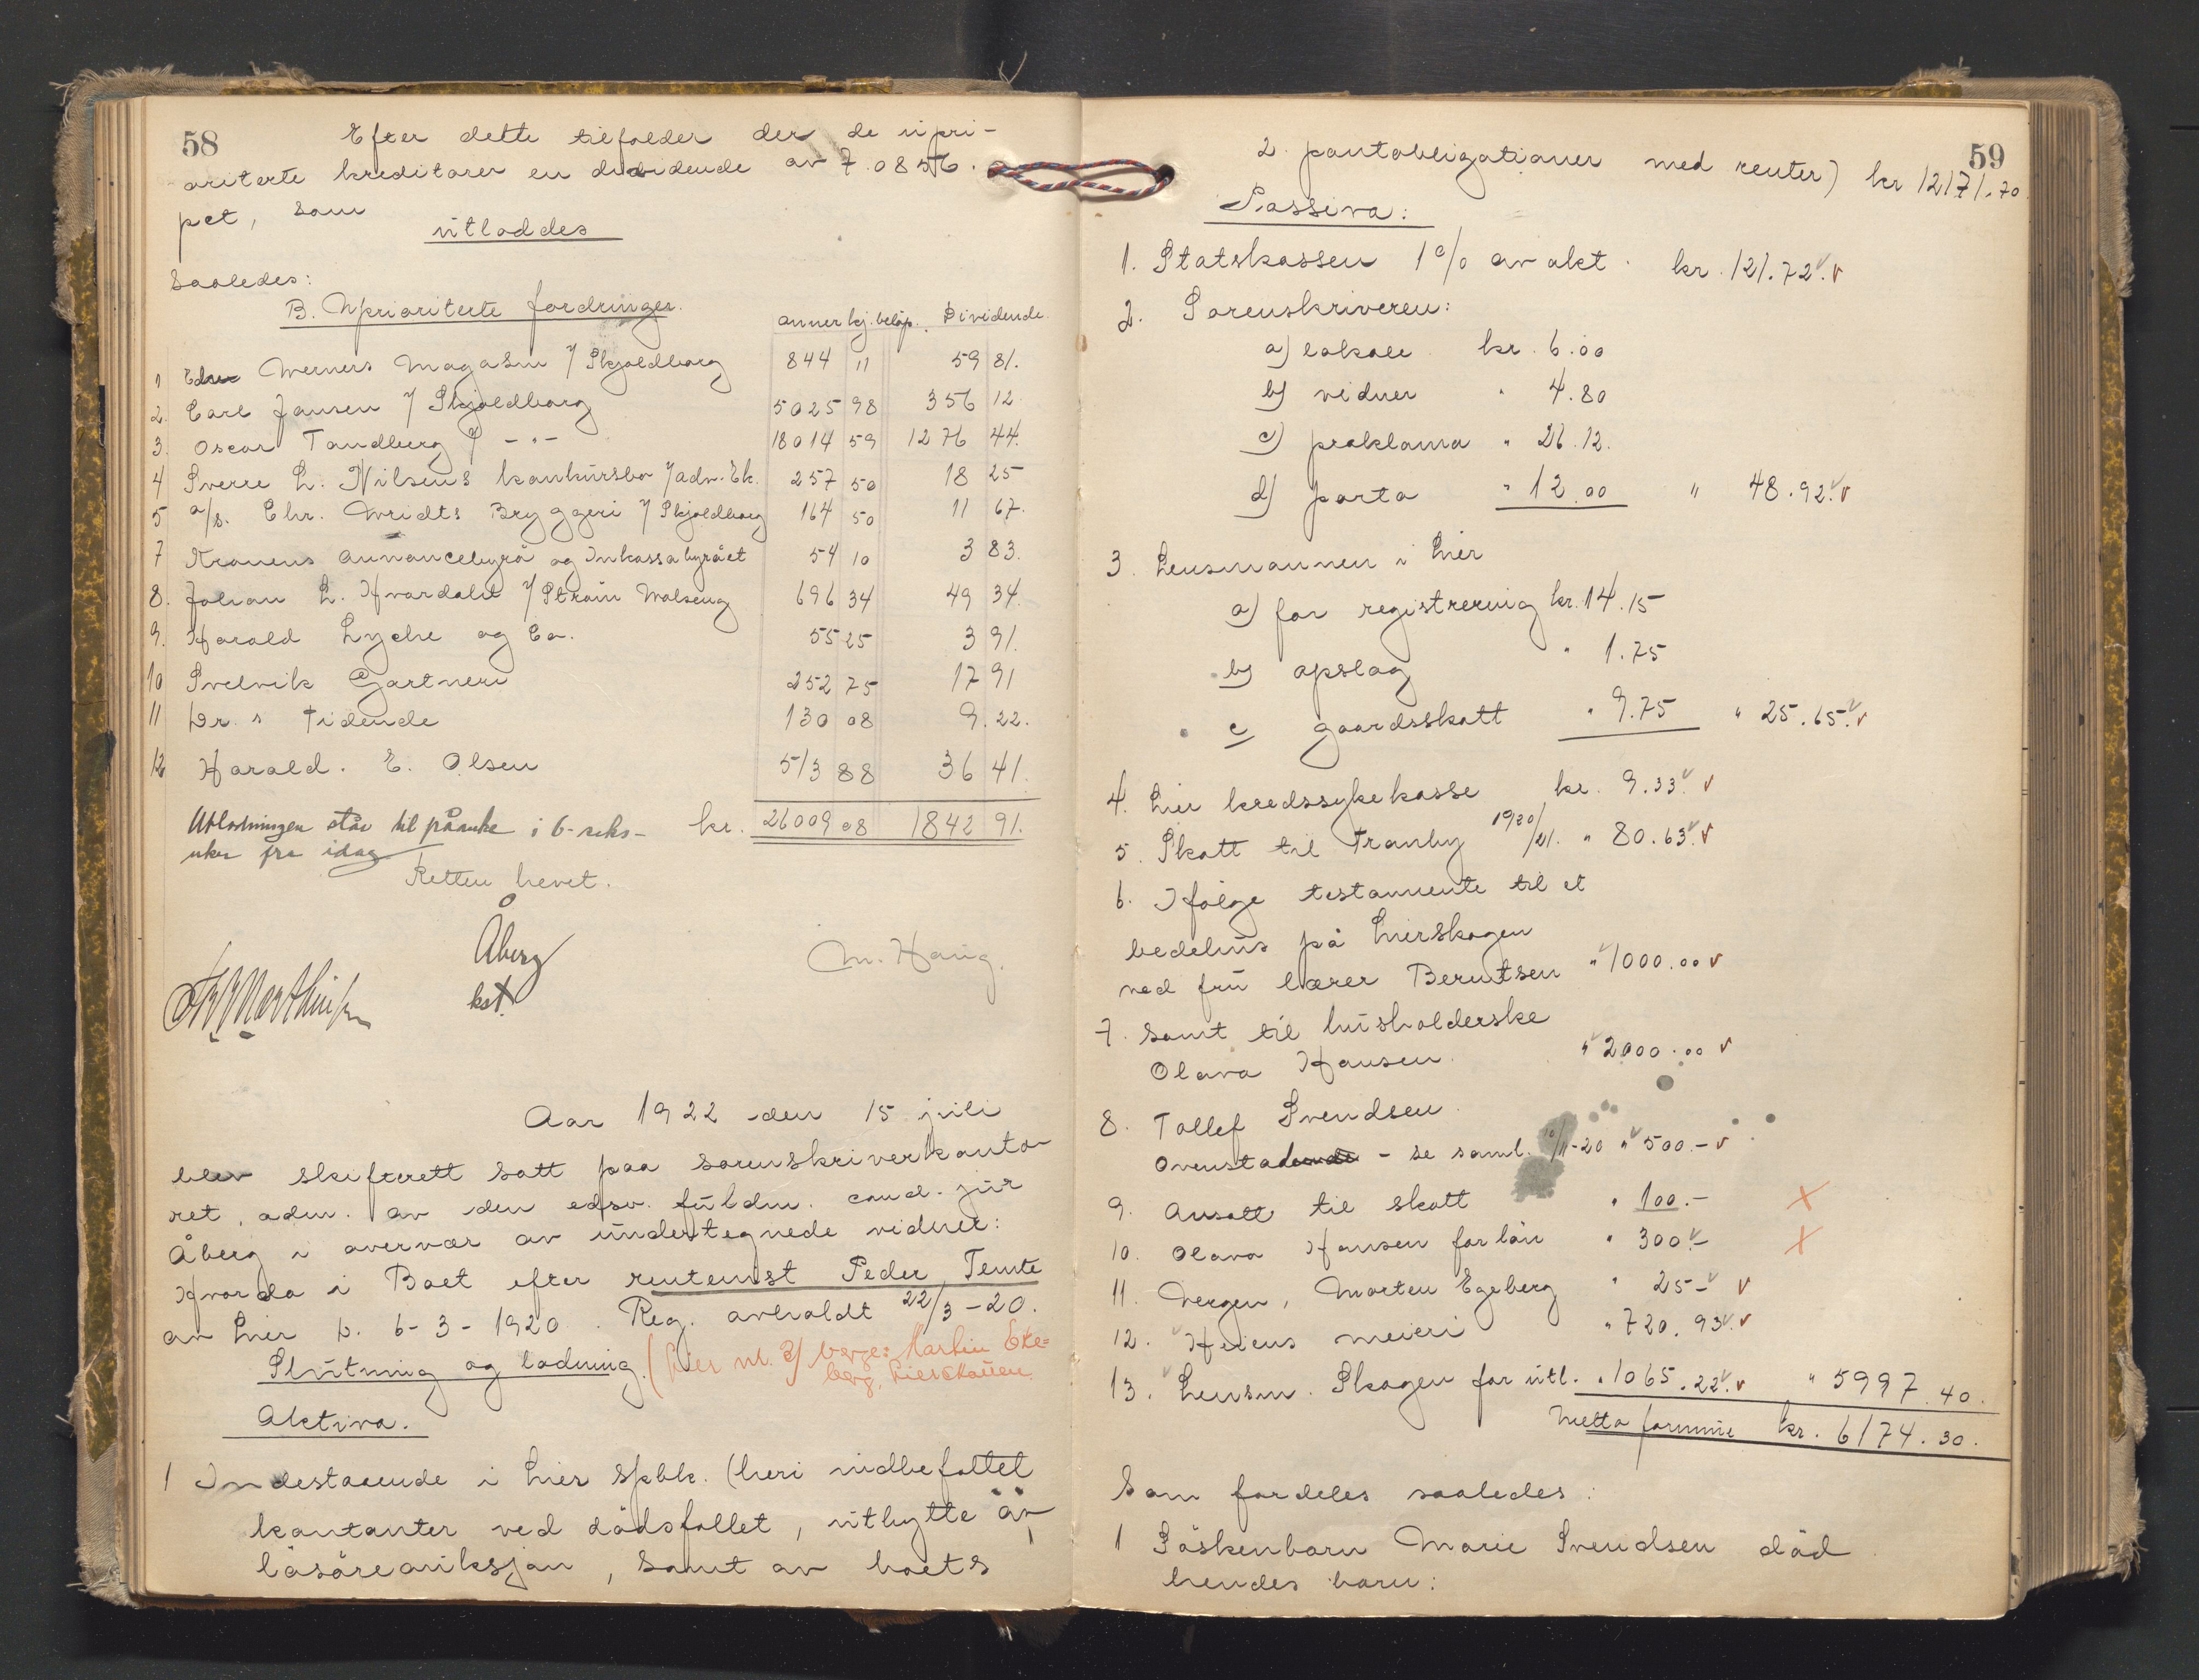 58
Efter dette tilfalder der de upri-
oriterte kreditorer en dividende av 7.0856.
pct, som
utloddes
saaledes:
B. Uprioriterte fordringer.
annerkj. beløp. Dividende.
1 Werners Magasin v/ Skjoldborg 844 11 59 81.
2. Carl Jansen v/ Skjoldborg 5025 98 356 12
3. Oscar Tandberg v/ -"- 18014 59 1276 44.
4 Sverre L. Nilsens konkursbo v/adv. Ek. 257 50 18 25
5 a/s. Chr. Wridts Bryggeri v/ Skjoldborg 164 50 11 67.
7 Kronens Annoncebyrå og Inkassobyrået 54 10 3 83.
8. Johan L. Hvardalet v/ Strøm Walseng 696 34 49 34.
9. Harald Lyche og Co. 55 25 3 91.
10 Svelvik Gartneri 252 75 17 91
11 Dr. s Tidende 130 08 9.22.
12 Harald. E. Olsen 513 88 36 41.
Utlodningen står til påanke i 6-seks- kr. 26009 08 1842 91.
uker fra idag
Retten hevet.
Åberg
kst.
M. Haug.
Aar 1922 den 15 juli
blev skifterett satt paa sorenskriverkonto-
ret, adm. av den edsv. fuldm. cand. jur
Åberg i overvær av undertegnede vidner:
Hvorda i Boet efter rentenist Peder Temte
av Lier d. 6-3-1920. Reg. avholdt 22/3-20.
Slutning og lodning. (Lier nl. 2/ verge: Martin Eke=
berg, Lierskauen.
Aktiva.
1 Indestaaende i Lier Spbk. (heri indbefattet
kontanter ved dødsfallet, utbytte av
løsøreauksjon, samt av boets
59
2 pantobligationer med renter) kr 12171.70
Passiva:
1. Statskassen 1% av akt. kr. 121.72
2. Sorenskriveren:
a) lokale kr. 6.00
b) vidner " 4.80
c) proklama " 26.12.
d) porto " 12.00 " 48.92
3. Lensmannen i Lier
a) for registrering kr. 14.15
b) opslag " 1.75
c gaardsskatt " 9.75 " 25.65
4. Lier kredssykekasse kr. 9.33
5. Skatt til Tranby 1920/21. " 80.63
6. Ifølge testamente til et
bedehus på Lierskogen
ved fru lærer Berntsen " 1000.00
7. samt til husholderske
Olava Hansen. " 2000.00
8. Tollef Svendsen.
Ovenstad - se saml. 10/11-20 " 500.-
9. Ansatt til skatt " 100.-
10. Olava Hansen for lån " 300.-
11. Vergen, Morten Egeberg " 25-
12. Heiens meieri " 720.93
13. Lensm. Skogen for utl. " 1065.22 " 5997.40.
Netto formue kr. 6174.30.
Som fordeles saaledes:
1 Søskenbarn Marie Svendsen død
hendes barn: